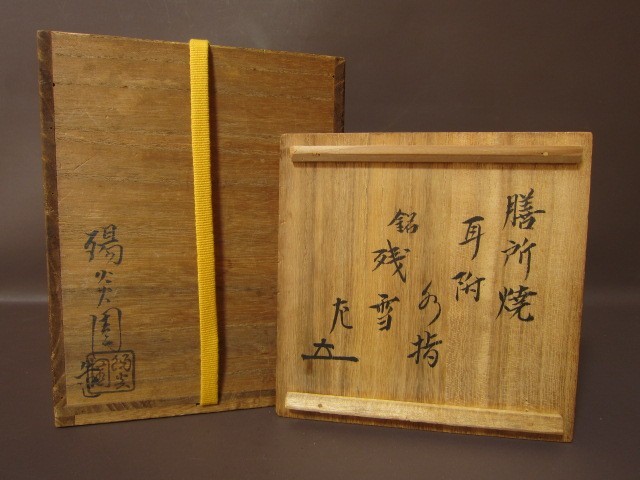 膳所焼
耳附
水指
銘
残雪
左
陽炎園
造